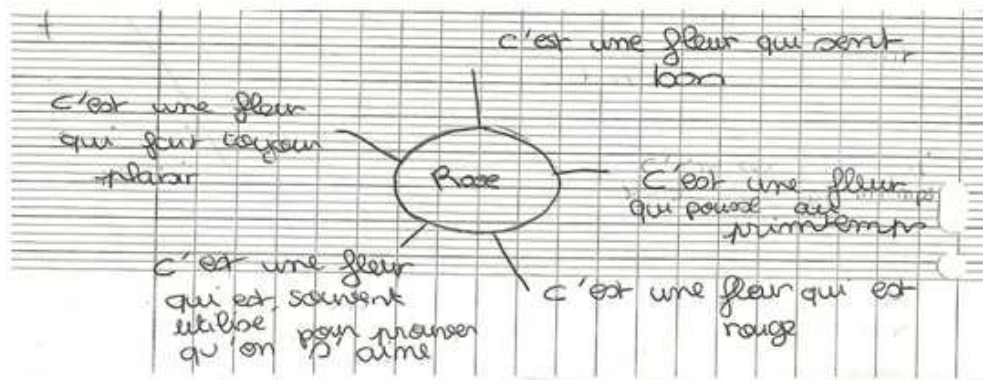 c'est une fleur qui sent
bon
c'est une fleur
qui fait toujour
plaisir
Rose
C'est une fleur
qui pousse au
printemps
c'est une fleur
qui est souvent
utilise pour prouver
qu'on s'aime
c'est une fleur qui est
rouge